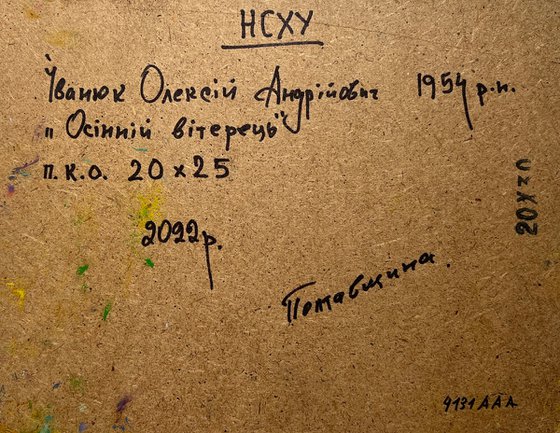 НСХУ
Іванюк Олексій Андрійович 1954 р.н.
"Осінній вітерець"
п.к.о. 20 х 25
2022 р.
Потавщина.
9131 ААА